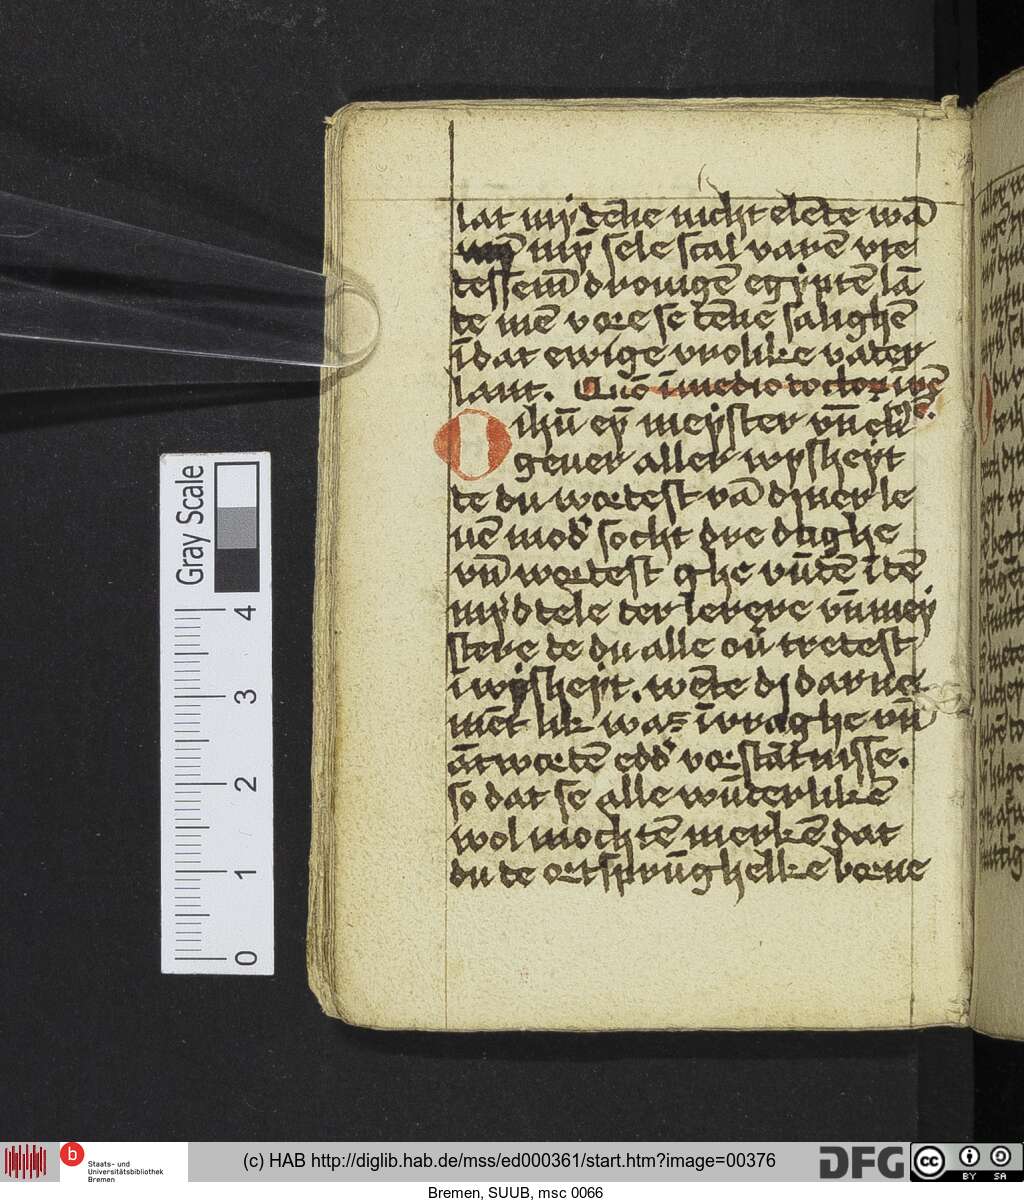 lat my dēne nicht elēde wā
my sele scal varē vte
dessem drouigē egiptē lā
de mē vore se dēne salighē
ī dat ewige vrolike vader
lant. Quō ī medio doctoꝝ īuē
O ihū eȳ meyster vn̄ en
geuer aller wysheyt
te du wordest vā dyner le
uē mod' socht dre daghe
vn̄ wordest ghe vūdē ī dē
myddele der lerere vn̄ mey
stere de du alle ou' tredest
ī wysheyt. wēte dy dar ne
mēt lik was ī vraghe vn̄
ātwordē edd' vorstātnisse.
so dat se alle wūderlikē
wol mochtē merkē dat
du de ortsprūghelke borne
Gray Scale
0 1 2 3 4
b Staats- und
Universitätsbibliothek
Bremen
(c) HAB http://diglib.hab.de/mss/ed000361/start.htm?image=00376
DFG
cc BY SA
Bremen, SUUB, msc 0066